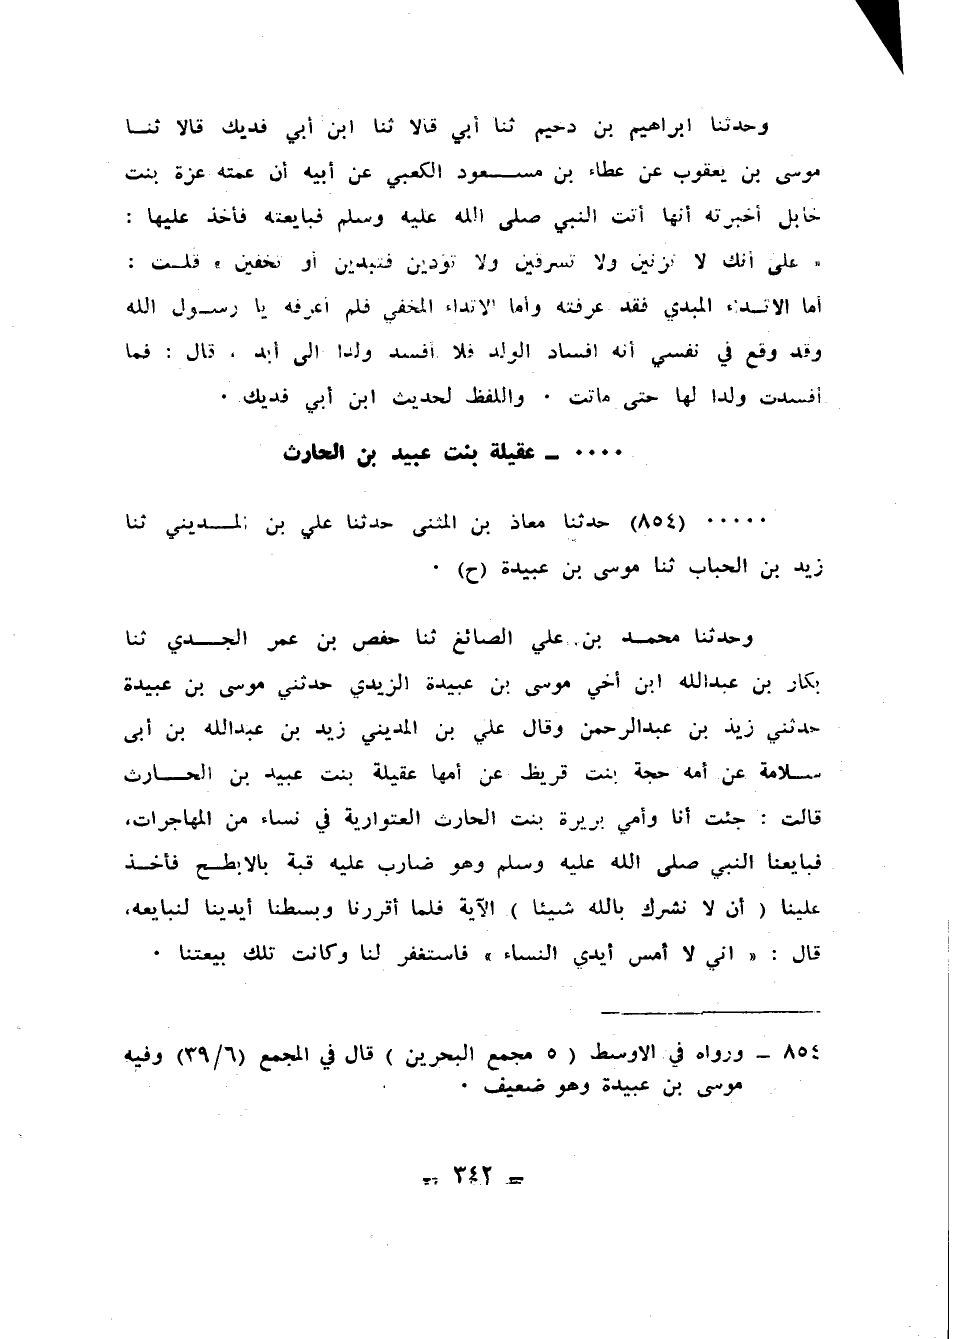 وحدثنا ابراهيم بن دحيم ثنا أبي قالا ثنا ابن أبي فديك قالا ثنا
موسى بن يعقوب عن عطاء بن مسعود الكعبي عن أبيه أن عمته عزة بنت
خابل أخبرته أنها أتت النبي صلى الله عليه وسلم فبايعته فأخذ عليها :
« على أنك لا تزنين ولا تسرقين ولا تؤدين فتبدين أو تخفين » قلت :
أما الاتداء المبدي فقد عرفته وأما الاتداء المخفي فلم أعرفه يا رسول الله
وقد وقع في نفسي أنه افساد الولد فلا أفسد ولدا الى أبد ، قال : فما
أفسدت ولدا لها حتى ماتت ٠ واللفظ لحديث ابن أبي فديك ٠
٠٠٠٠ ـ عقيلة بنت عبيد بن الحارث
٠٠٠٠٠ (٨٥٤) حدثنا معاذ بن المثنى حدثنا علي بن المديني ثنا
زيد بن الحباب ثنا موسى بن عبيدة (ح) ٠
وحدثنا محمد بن علي الصائغ ثنا حفص بن عمر الجدي ثنا
بكار بن عبدالله ابن أخي موسى بن عبيدة الزيدي حدثني موسى بن عبيدة
حدثني زيد بن عبدالرحمن وقال علي بن المديني زيد بن عبدالله بن أبى
سلامة عن أمه حجة بنت قريظ عن أمها عقيلة بنت عبيد بن الحارث
قالت : جئت أنا وأمي بريرة بنت الحارث العتوارية في نساء من المهاجرات،
فبايعنا النبي صلى الله عليه وسلم وهو ضارب عليه قبة بالابطح فأخذ
علينا ( أن لا نشرك بالله شيئا ) الآية فلما أقررنا وبسطنا أيدينا لنبايعه،
قال : « اني لا أمس أيدي النساء » فاستغفر لنا وكانت تلك بيعتنا ٠
٨٥٤ ـ ورواه في الاوسط ( ٥ مجمع البحرين ) قال في المجمع (٣٩/٦) وفيه
موسى بن عبيدة وهو ضعيف ٠
ـ ٣٤٢ ـ